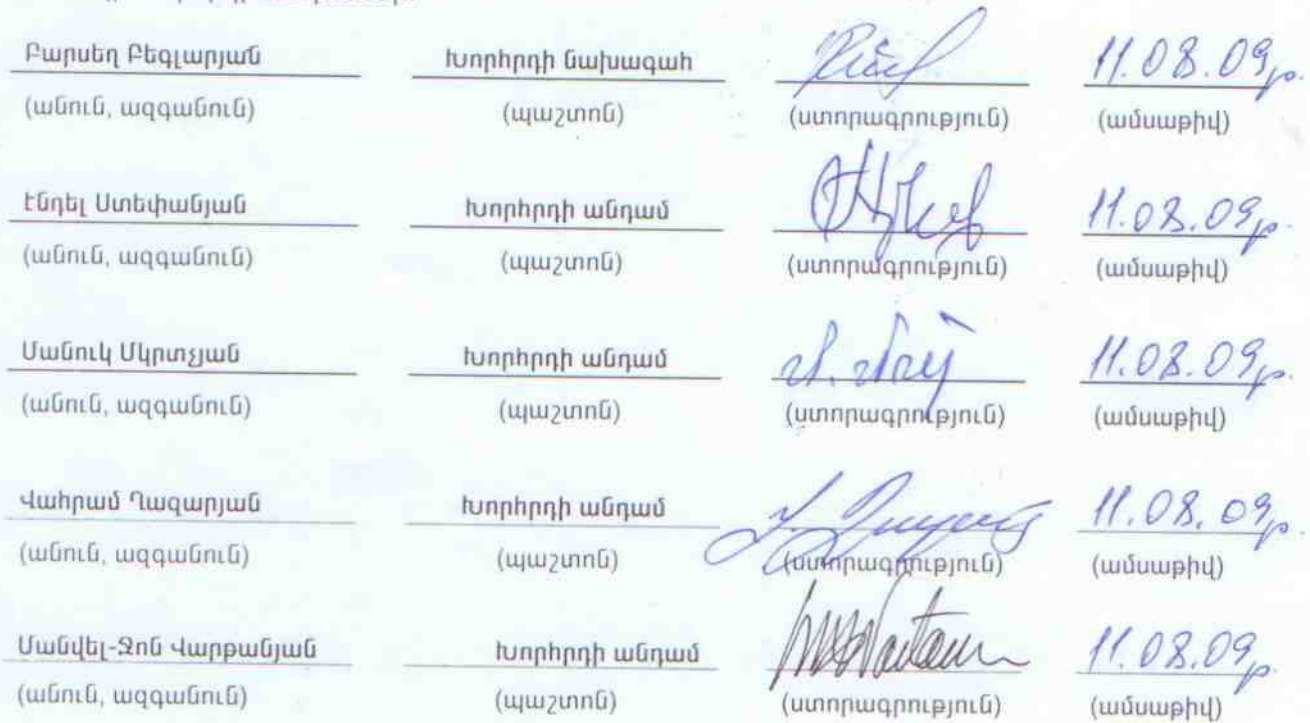 Բարսեղ Բեգլարյան Խորհրդի նախագահ 11.08.09թ.
(անուն, ազգանուն) (պաշտոն) (ստորագրություն) (ամսաթիվ)
Էնդել Ստեփանյան Խորհրդի անդամ 11.08.09թ.
(անուն, ազգանուն) (պաշտոն) (ստորագրություն) (ամսաթիվ)
Մանուկ Մկրտչյան Խորհրդի անդամ 11.08.09թ.
(անուն, ազգանուն) (պաշտոն) (ստորագրություն) (ամսաթիվ)
Վահրամ Ղազարյան Խորհրդի անդամ 11.08.09թ.
(անուն, ազգանուն) (պաշտոն) (ստորագրություն) (ամսաթիվ)
Մանվել-Ջոն Վարթանյան Խորհրդի անդամ 11.08.09թ.
(անուն, ազգանուն) (պաշտոն) (ստորագրություն) (ամսաթիվ)